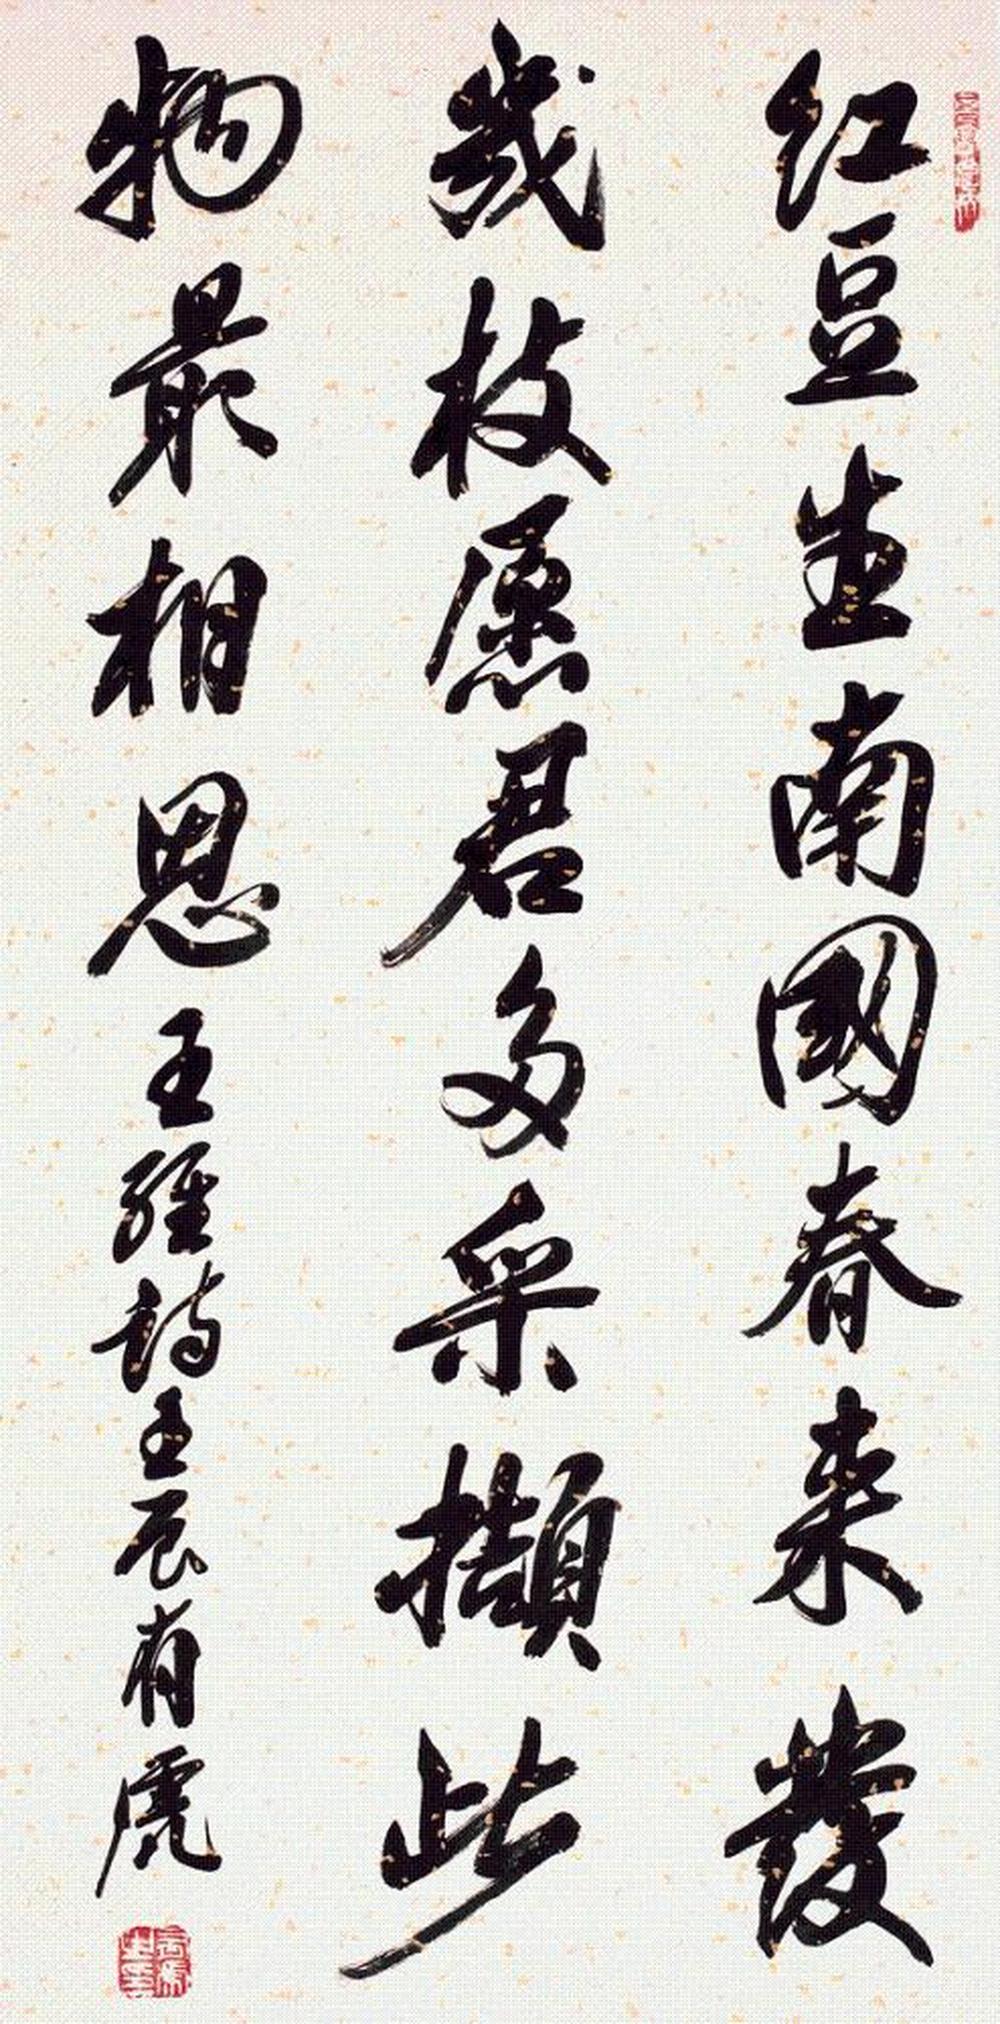 红豆生南國春来發
幾枝愿君多采擷此
物最相思王維詩壬辰有虎